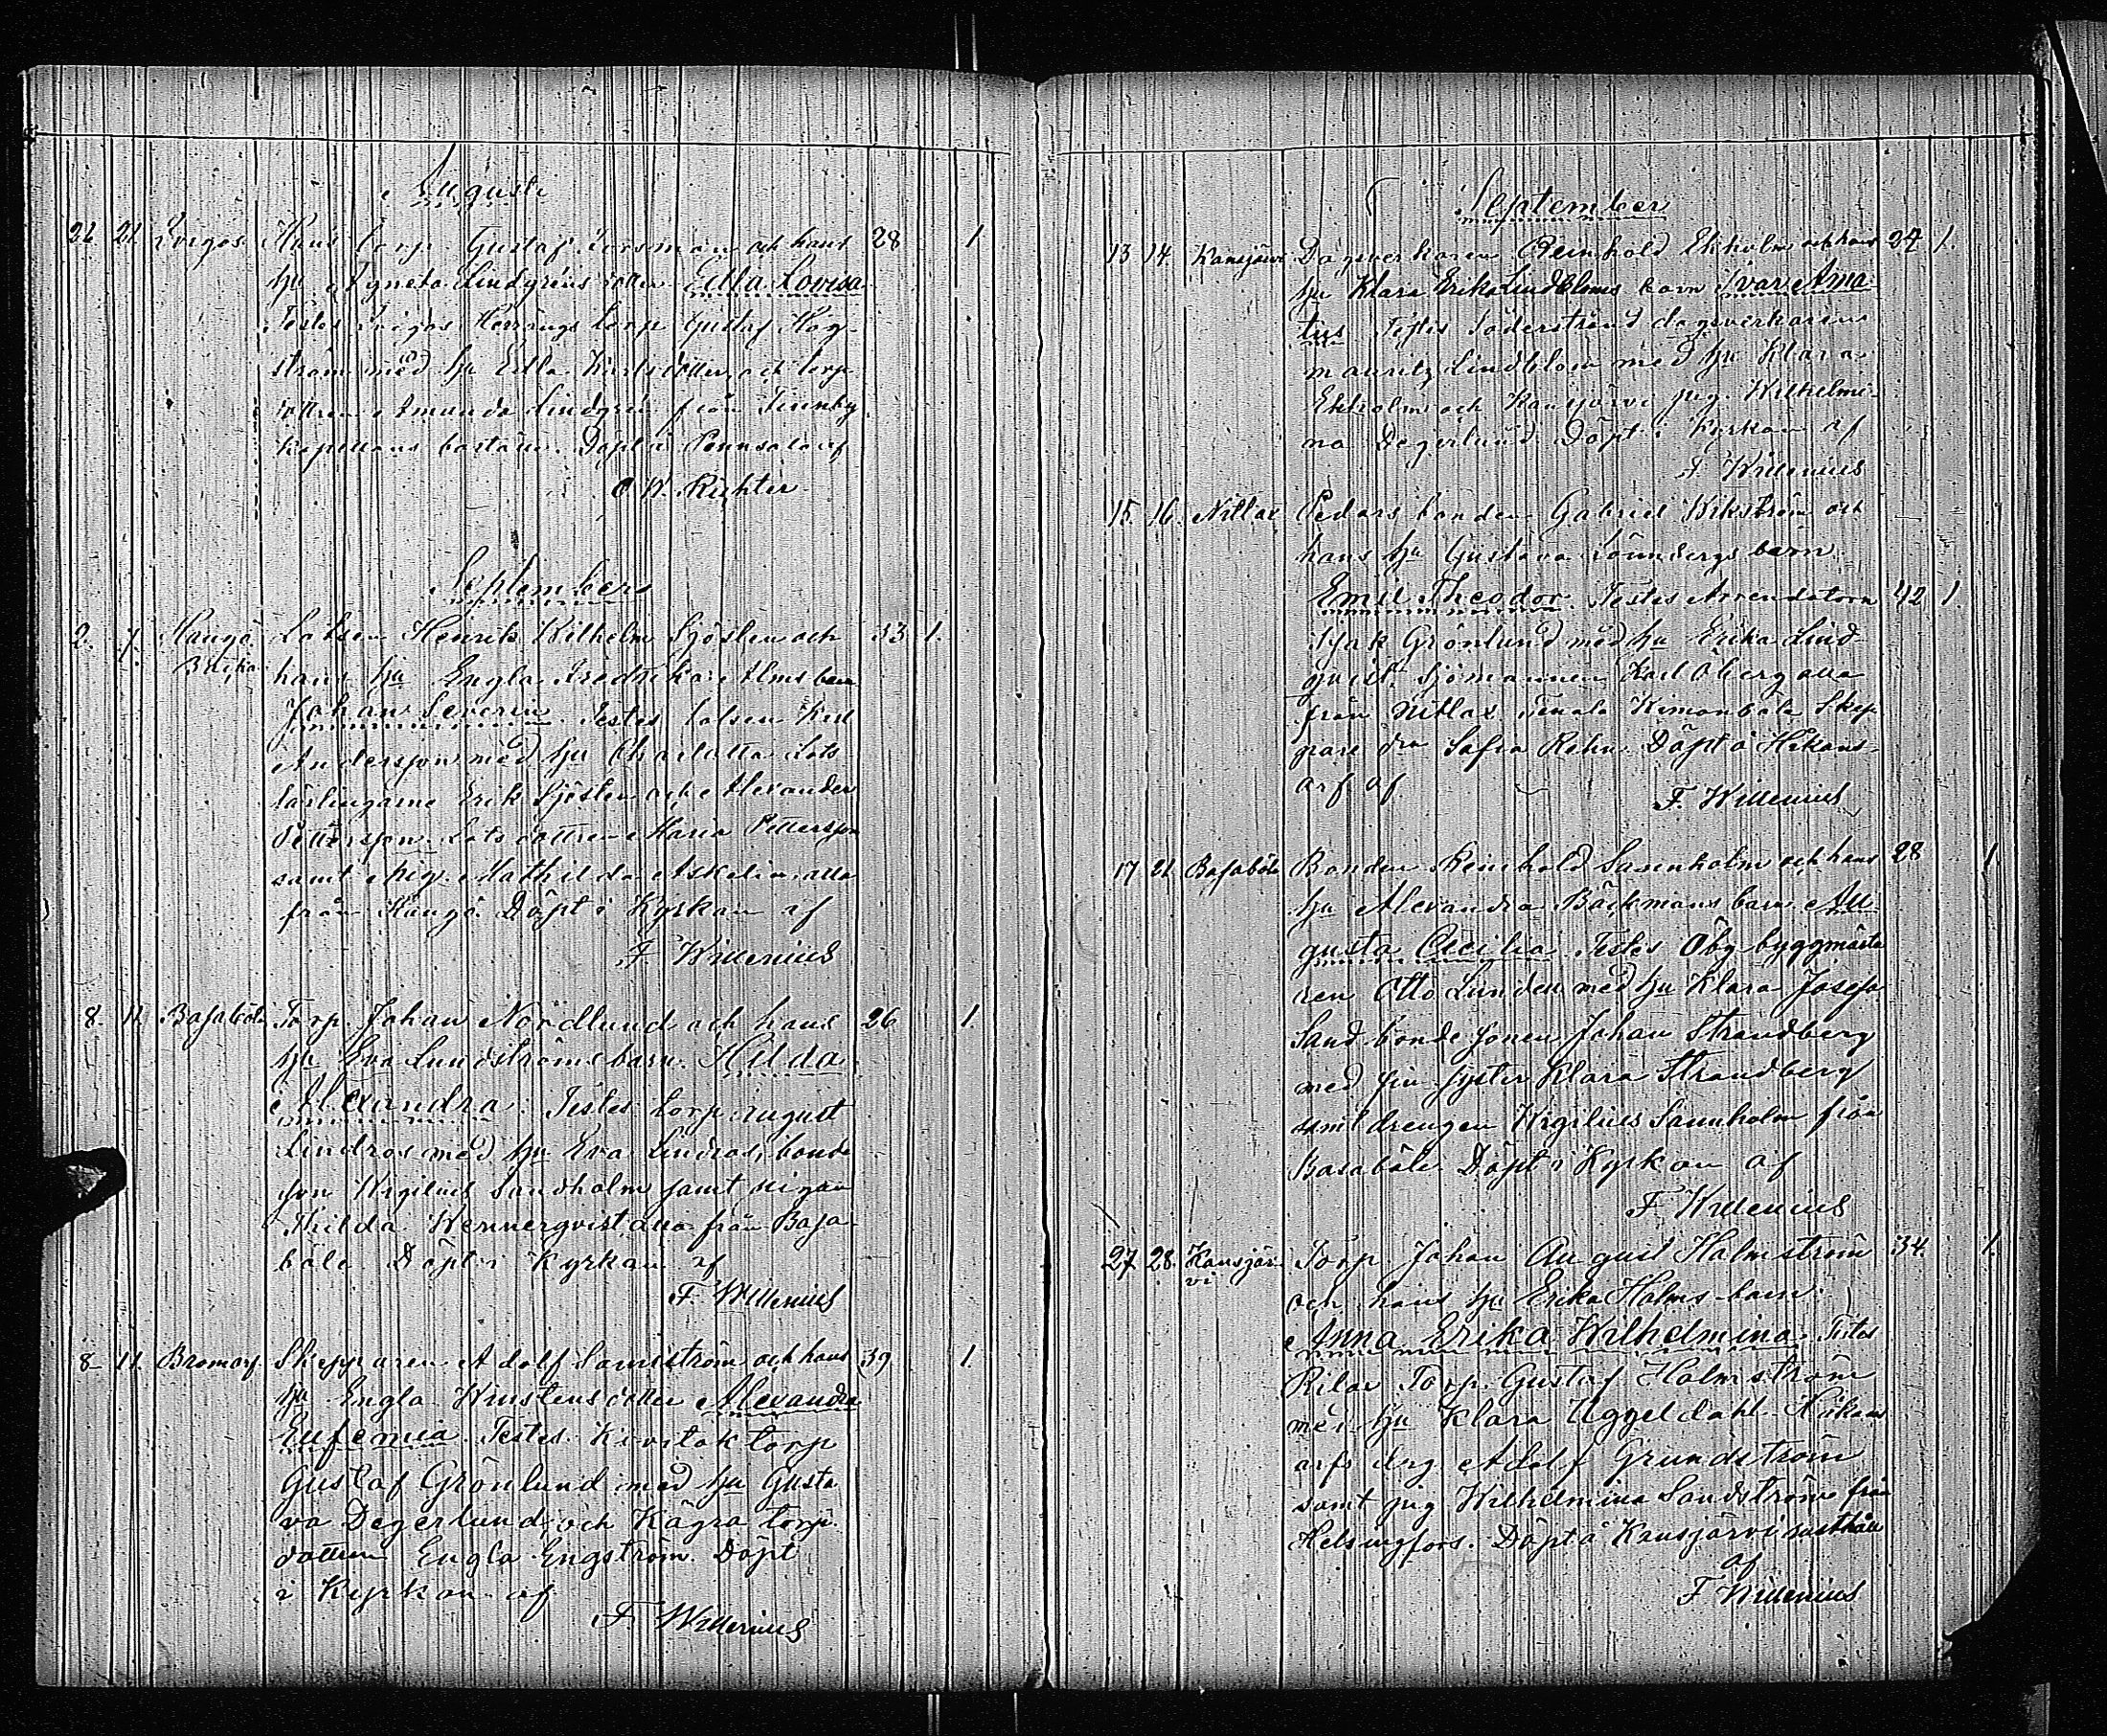 Augusti
21 21 Hans torp. Gustaf Forsman och hans 28 1
hu Agneta Lindgrens dotter Edla Lovisa
Testes torp Gustaf Hög-
ström med hu Edla Karlsdotter och torp
dottren Amanda Lindgren från
kapellans boställe. Döpt i af
O. W. Richter
September
2. 7. Lotsen Henrik Wilhelm Sjösten och 33 1.
hans hu Engla Fredrika Alms barn
Johan Severin. Testes lotsen Karl
Andersson med hu Charlotta Lots
lärlingarne Erik Sjösten och Alexander
Pettersson. Lots dottren Maria Pettersson
samt pig. Mathilda Askelin alla
från Hangö. Döpt i Kyrkan af
F. Willenius
8. 11. Basaböle Torp. Johan Nordlund och hans 26 1.
hu Eva Lundströms barn Hilda
Alexandra. Testes torp. August
Lindros med hu Eva Lindros, bonde
son Wirgilius Sandholm samt pigan
Thilda Wennerqvist alla från Basa-
böle Döpt i Kyrkan af
F. Willenius
8 11. Bromarf Skepparen Adolf Sandström och hans 39 1.
hu Engla dotter Alexandra
Eufemia. Testes. Kivitok torp
Gustaf Grönlund med hu Gusta
va Degerlund och Kägra torp.
dottren Engla Engström. Döpt
i Kyrkan af
F. Willenius
September
13 14 Kansjärvi Dagsverkaren Reinhold Ekholm och hans 27 1.
hu Klara Erika Lindbloms barn Ivar Ama-
tus Testes Söderstrand dagsverkaren
Mauritz Lindblom med hu Klara
Ekholm och Kansjärvi pig. Wilhelmi-
na Degerlund Döpt i Kyrkan af
F. Willenius
15. 16. Nitlax Pedars bonden Gabriel Wikström och
hans hu Gustava Sönnbergs barn
Emil Theodor. Testes Arrendatorn 42 1.
Isak Grönlund med hu Erika Lind
qvist. Sjömannen Karl Öberg alla
från Nitlax. Tenala Kimonböle Skep
pare dra Sofia Rehn. Döpt å Hikans-
arf af
F. Willenius
17 21 Basaböle Bonden Reinhold Sannholm och hans 28 1
hu Alexandra Bäckmans barn Au-
gusta Cecilia. Testes Öby byggmästa
ren Otto Lunden med hu Klara Josefa
Sand bonde sonen Johan Strandberg
med sin syster Klara Strandberg
samt drengen Wirgilius Sannholm från
Basaböle Döpt i Kyrkan af
F. Willenius
27 28. Kansjär- Torp. Johan August Holmström 34. 1.
vi
och hans hu Erika Holms barn
Anna Erika Wilhelmina. Testes
Rilax Torp. Gustaf Holmström
med hu Klara Uggeldahl. Hikans
arfs drg Adolf Grundström
samt pig Wilhelmina Sandström från
Helsingfors. Döpt å Kansjärvi rusthåll
af
F. Willenius